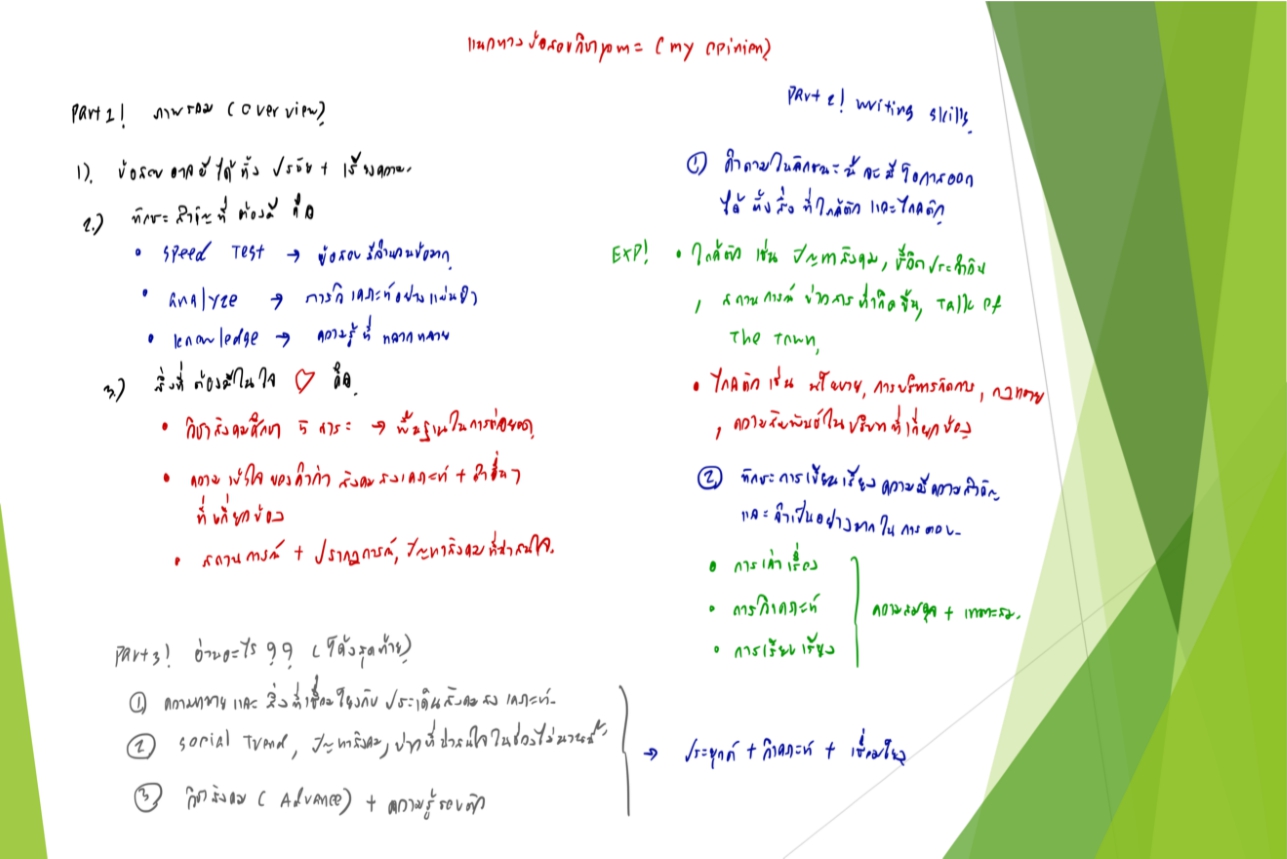 แนวทางข้อสอบวิชาเฉพาะ (my opinion)
Part 1! ภาพรวม (Over view)
1). ข้อสอบ อาจมีได้ทั้ง ปรนัย + เรียงความ.
2.) ทักษะสำคัญที่ ต้องมี คือ
• Speed Test → ข้อสอบมีจำนวนข้อมาก
• Analyze → การวิเคราะห์อย่างแม่นยำ
• knowledge → ความรู้ที่ หลากหลาย
3.) สิ่งที่ ต้องมีในใจ ♡ คือ
• วิชาสังคมศึกษา 5 สาระ → พื้นฐานในการต่อยอด
• ความเข้าใจ ของคำว่า สังคมสงเคราะห์ + คำอื่นๆ
ที่เกี่ยวข้อง
• สถานการณ์ + ปรากฏการณ์, ปัญหาสังคมที่น่าสนใจ.
Part 2! writing skills
① คำถามในลักษณะนี้ จะมีโอกาสออก
ได้ ทั้งสิ่ง ที่ใกล้ตัว และไกลตัว
EXP! • ใกล้ตัว เช่น ปัญหาสังคม, ชีวิตประจำวัน
, สถานการณ์ ข่าวสารที่เกิดขึ้น, Talk of
The Town,
• ไกลตัว เช่น นโยบาย, การบริหารจัดการ, กฎหมาย
, ความสัมพันธ์ในบริบทที่เกี่ยวข้อง
② ทักษะการเขียนเรียงความมีความสำคัญ
และจำเป็นอย่างมากในการสอบ.
• การเล่าเรื่อง
• การวิเคราะห์
• การเรียบเรียง
ความสมดุล + เหมาะสม.
Part 3! อ่านอะไร ?? (โค้งสุดท้าย)
① ความหมาย และ สิ่งที่เชื่อมโยงกับ ประเด็นสังคมสงเคราะห์.
② Social Trend, ปัญหาสังคม, ข่าวที่น่าสนใจในช่วงไม่นานนี้
③ วิชาสังคม (Advance) + ความรู้รอบตัว
→ ประยุกต์ + วิเคราะห์ + เชื่อมโยง